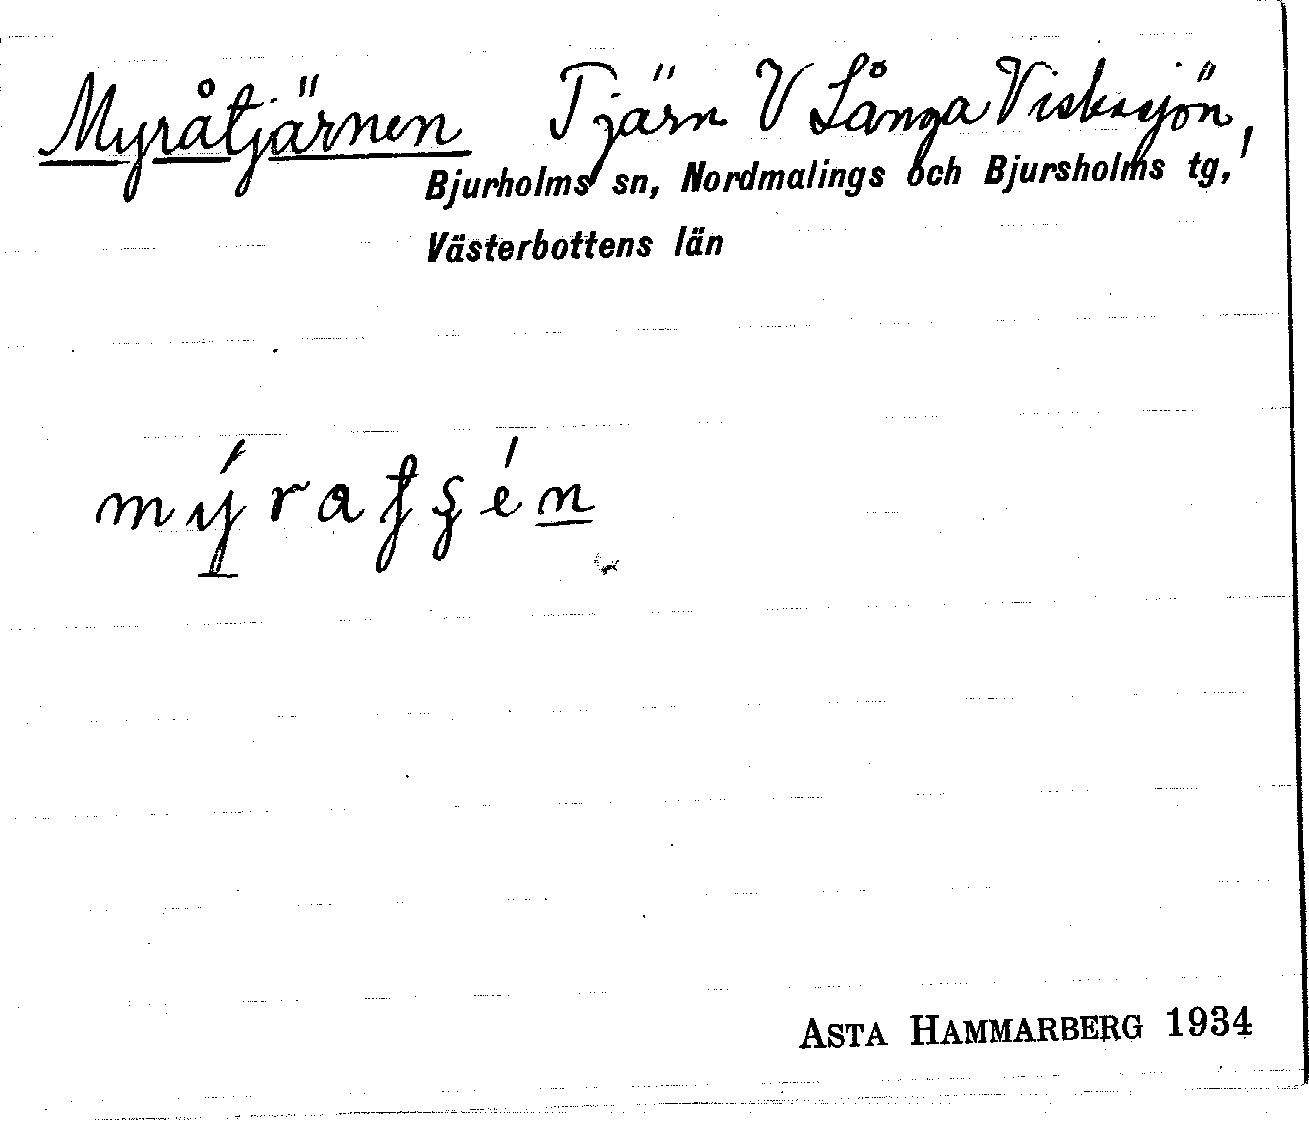 Myråtjärnen Tjärn V Långa Viskasjön,
Bjurholms sn, Nordmalings och Bjursholms tg,
Västerbottens län
ASTA HAMMARBERG 1934